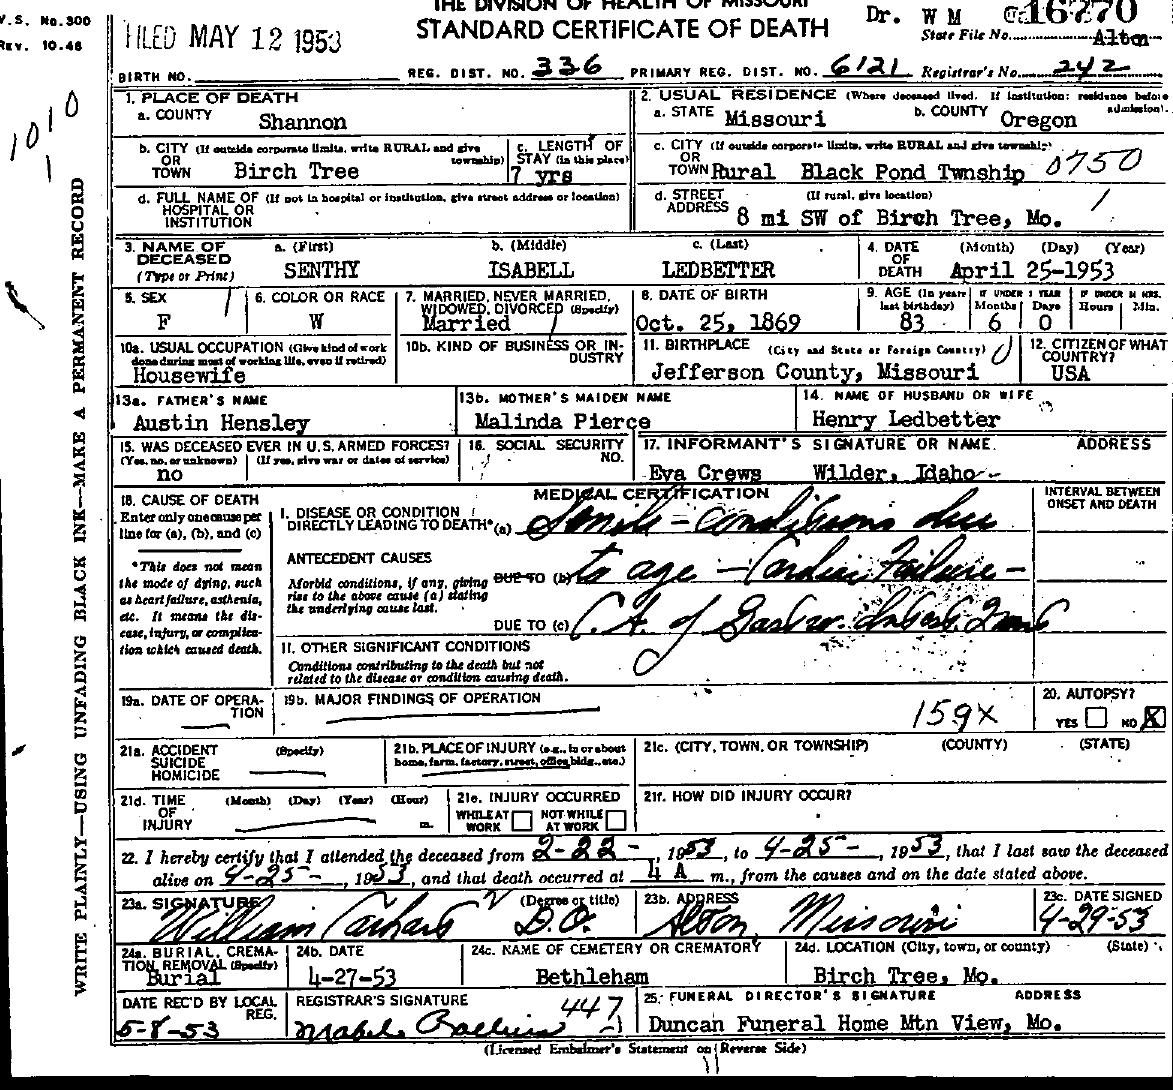 V.S. No. 300
REV. 10-48
FILED MAY 12 1953
THE DIVISION OF HEALTH OF MISSOURI
STANDARD CERTIFICATE OF DEATH
Dr. W M
16770
State File No. Alton
BIRTH NO.
REG. DIST. NO. 336
PRIMARY REG. DIST. NO. 6121
Registrar's No. 242
1010
1
WRITE PLAINLY—USING UNFADING BLACK INK—MAKE A PERMANENT RECORD
1. PLACE OF DEATH
a. COUNTY Shannon
2. USUAL RESIDENCE (Where deceased lived. If institution: residence before admission).
a. STATE Missouri
b. COUNTY Oregon
b. CITY (If outside corporate limits, write RURAL and give township)
OR TOWN Birch Tree
c. LENGTH OF STAY (in this place)
7 yrs
c. CITY (If outside corporate limits, write RURAL and give township)
OR TOWN Rural Black Pond Twnship 0750
d. FULL NAME OF (If not in hospital or institution, give street address or location)
HOSPITAL OR INSTITUTION
d. STREET ADDRESS (If rural, give location)
8 mi SW of Birch Tree, Mo.
3. NAME OF DECEASED (Type or Print)
a. (First) SENTHY
b. (Middle) ISABELL
c. (Last) LEDBETTER
4. DATE OF DEATH (Month) (Day) (Year)
April 25-1953
5. SEX
F
6. COLOR OR RACE
W
7. MARRIED, NEVER MARRIED, WIDOWED, DIVORCED (Specify)
Married
8. DATE OF BIRTH
Oct. 25, 1869
9. AGE (In years last birthday)
83
IF UNDER 1 YEAR
Months 6
Days 0
IF UNDER 24 HRS.
Hours
Min.
10a. USUAL OCCUPATION (Give kind of work done during most of working life, even if retired)
Housewife
10b. KIND OF BUSINESS OR INDUSTRY
11. BIRTHPLACE (City and State or Foreign Country)
Jefferson County, Missouri
12. CITIZEN OF WHAT COUNTRY?
USA
13a. FATHER'S NAME
Austin Hensley
13b. MOTHER'S MAIDEN NAME
Malinda Pierce
14. NAME OF HUSBAND OR WIFE
Henry Ledbetter
15. WAS DECEASED EVER IN U.S. ARMED FORCES?
(Yes, no, or unknown) (If yes, give war or dates of service)
no
16. SOCIAL SECURITY NO.
17. INFORMANT'S SIGNATURE OR NAME ADDRESS
Eva Crews Wilder, Idaho
18. CAUSE OF DEATH
Enter only one cause per line for (a), (b), and (c)
*This does not mean the mode of dying, such as heart failure, asthenia, etc. It means the disease, injury, or complication which caused death.
MEDICAL CERTIFICATION
INTERVAL BETWEEN ONSET AND DEATH
I. DISEASE OR CONDITION DIRECTLY LEADING TO DEATH* (a) Senile - conditions due
ANTECEDENT CAUSES
Morbid conditions, if any, giving rise to the above cause (a) stating the underlying cause last.
DUE TO (b) to age - Cardiac Failure -
DUE TO (c) C.A. of Gastro
II. OTHER SIGNIFICANT CONDITIONS
Conditions contributing to the death but not related to the disease or condition causing death.
19a. DATE OF OPERATION
19b. MAJOR FINDINGS OF OPERATION
159X
20. AUTOPSY?
YES NO X
21a. ACCIDENT SUICIDE HOMICIDE (Specify)
21b. PLACE OF INJURY (e.g., in or about home, farm, factory, street, office bldg., etc.)
21c. (CITY, TOWN, OR TOWNSHIP) (COUNTY) (STATE)
21d. TIME OF INJURY (Month) (Day) (Year) (Hour) m.
21e. INJURY OCCURRED
WHILE AT WORK NOT WHILE AT WORK
21f. HOW DID INJURY OCCUR?
22. I hereby certify that I attended the deceased from 2-22-, 1953, to 4-25-, 1953, that I last saw the deceased
alive on 4-25-, 1953, and that death occurred at 4 A m., from the causes and on the date stated above.
23a. SIGNATURE (Degree or title)
William Carhart D.O.
23b. ADDRESS
Alton, Missouri
23c. DATE SIGNED
4-29-53
24a. BURIAL, CREMATION, REMOVAL (Specify)
Burial
24b. DATE
4-27-53
24c. NAME OF CEMETERY OR CREMATORY
Bethleham
24d. LOCATION (City, town, or county) (State)
Birch Tree, Mo.
DATE REC'D BY LOCAL REG.
5-8-53
REGISTRAR'S SIGNATURE
Mabel
447
25. FUNERAL DIRECTOR'S SIGNATURE ADDRESS
Duncan Funeral Home Mtn View, Mo.
(Licensed Embalmer's Statement on Reverse Side)